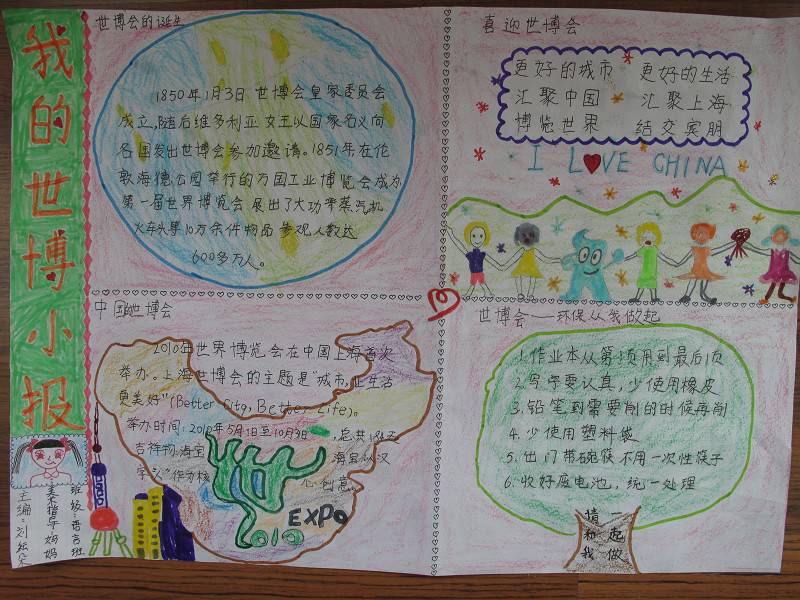 我的世博小报
世博会的诞生
1850年1月3日世博会皇家委员会
成立,随后维多利亚女王以国家名义向
各国发出世博会参加邀请。1851年,在伦
敦海德公园举行的万国工业博览会成为
第一届世界博览会 展出了大功率蒸汽机
火车头等10万余件物品 参观人数达
600多万人。
喜迎世博会
更好的城市 更好的生活
汇聚中国 汇聚上海
博览世界 结交宾朋
I LOVE CHINA
中国世博会
2010年世界博览会在中国上海首次
举办。上海世博会的主题是“城市,让生活
更美好”(Better City, Better Life)。
举办时间:2010年5月1日至10月3 ,总共184天
吉祥物:海宝 海宝以汉
字“人”作为核 心创意。
EXPO
世博会——环保从我做起
1.作业本从第1页用到最后1页
2.写字要认真,少使用橡皮
3.铅笔到需要削的时候再削
4.少使用塑料袋
5.出门带碗筷不用一次性筷子
6.收好废电池,统一处理
请和我
一起做
班级:语言班
美术指导:妈妈
主编:刘